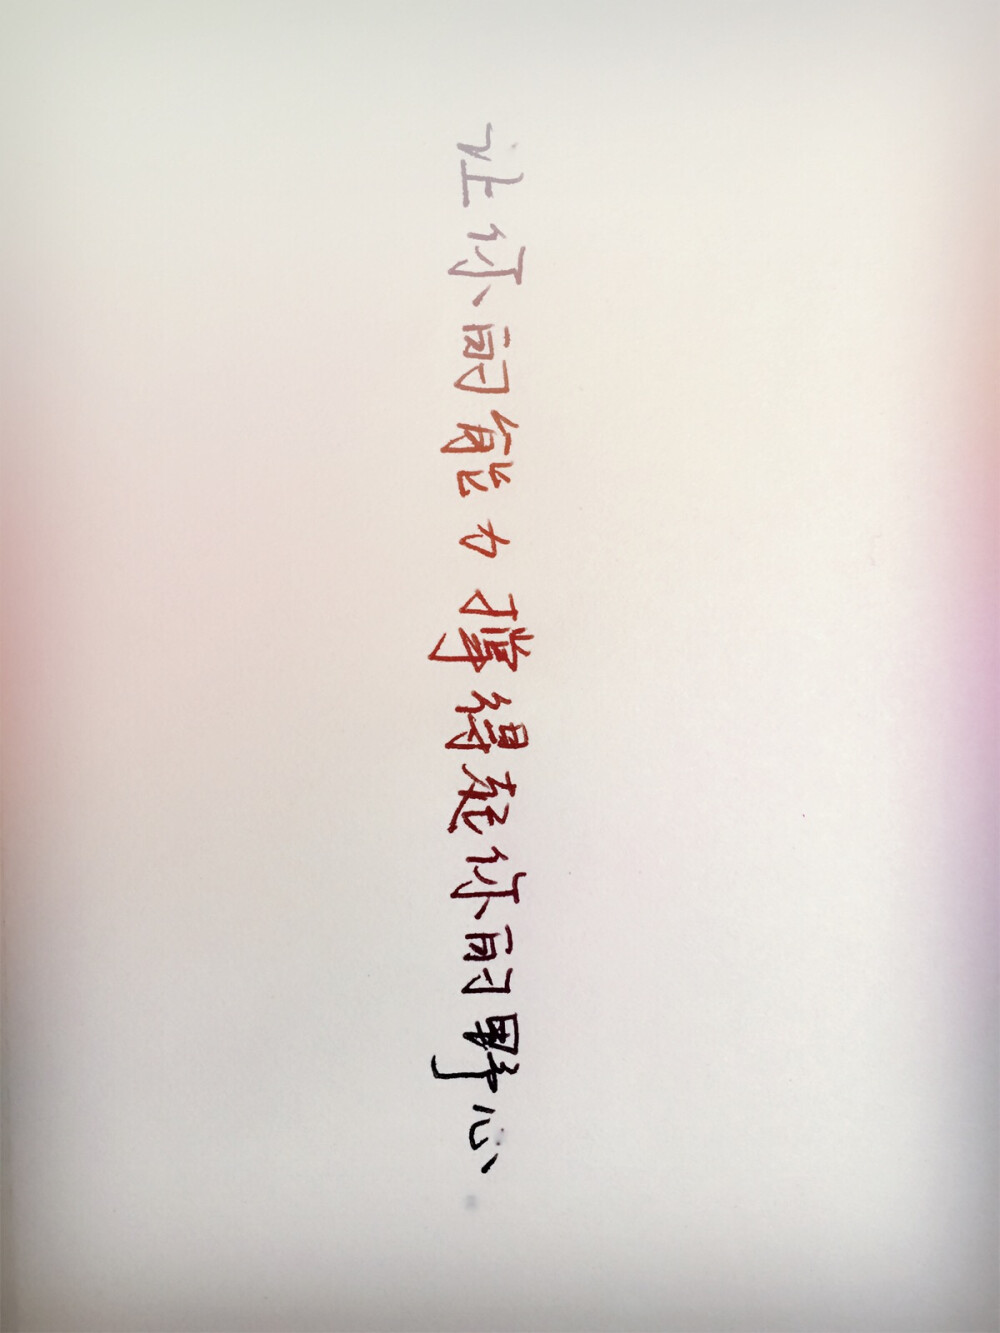 让你的能力撑得起你的野心